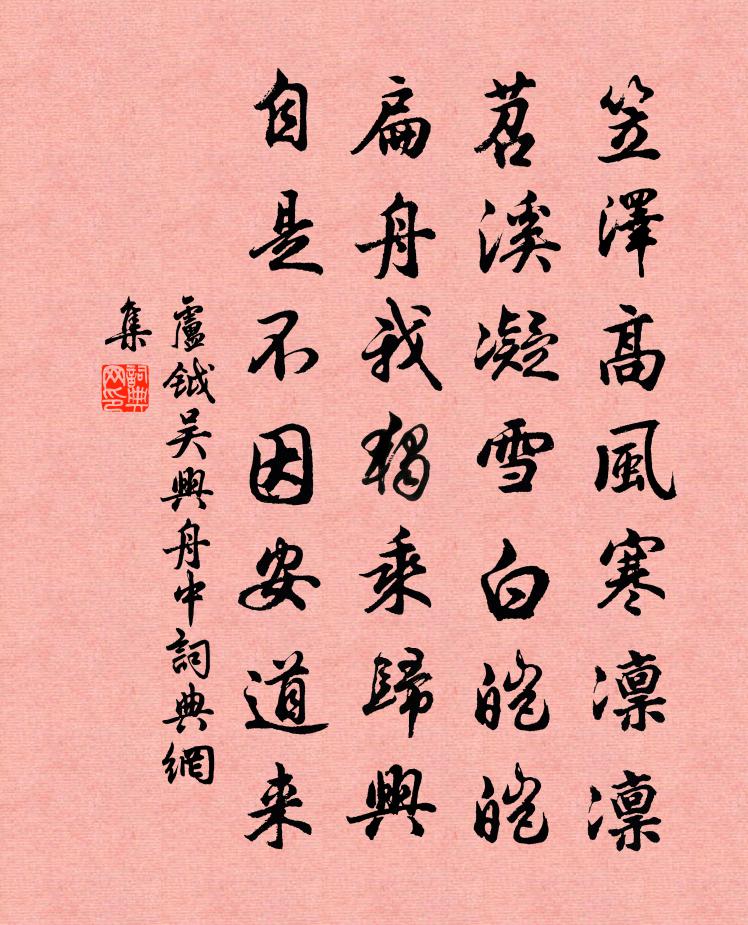 笠澤高風寒凜凜
苕溪凝雪白皚皚
扁舟我獨乘歸興
自是不因安道来
盧鉞吴興舟中詞典網
集
詞典
网印